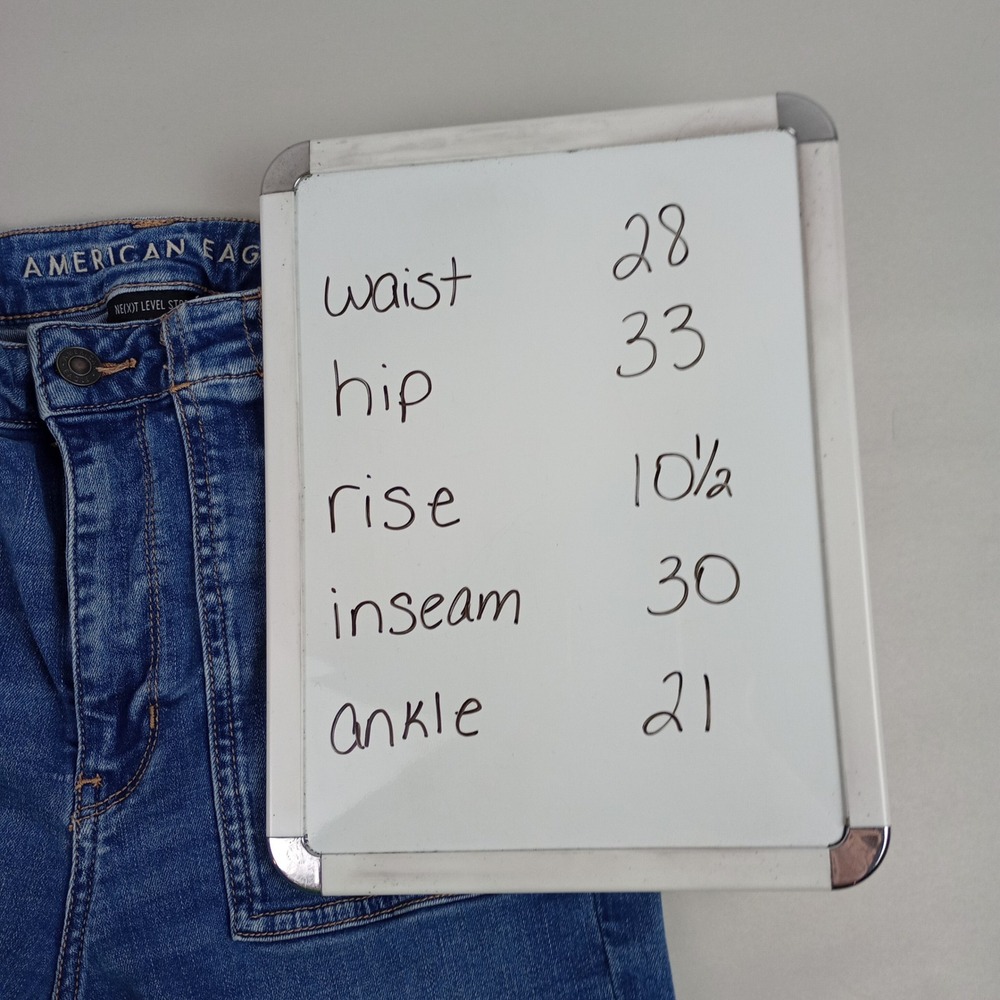 AMERICAN EAG
NE(X)T LEVEL ST
waist 28
hip 33
rise 10½
inseam 30
ankle 21